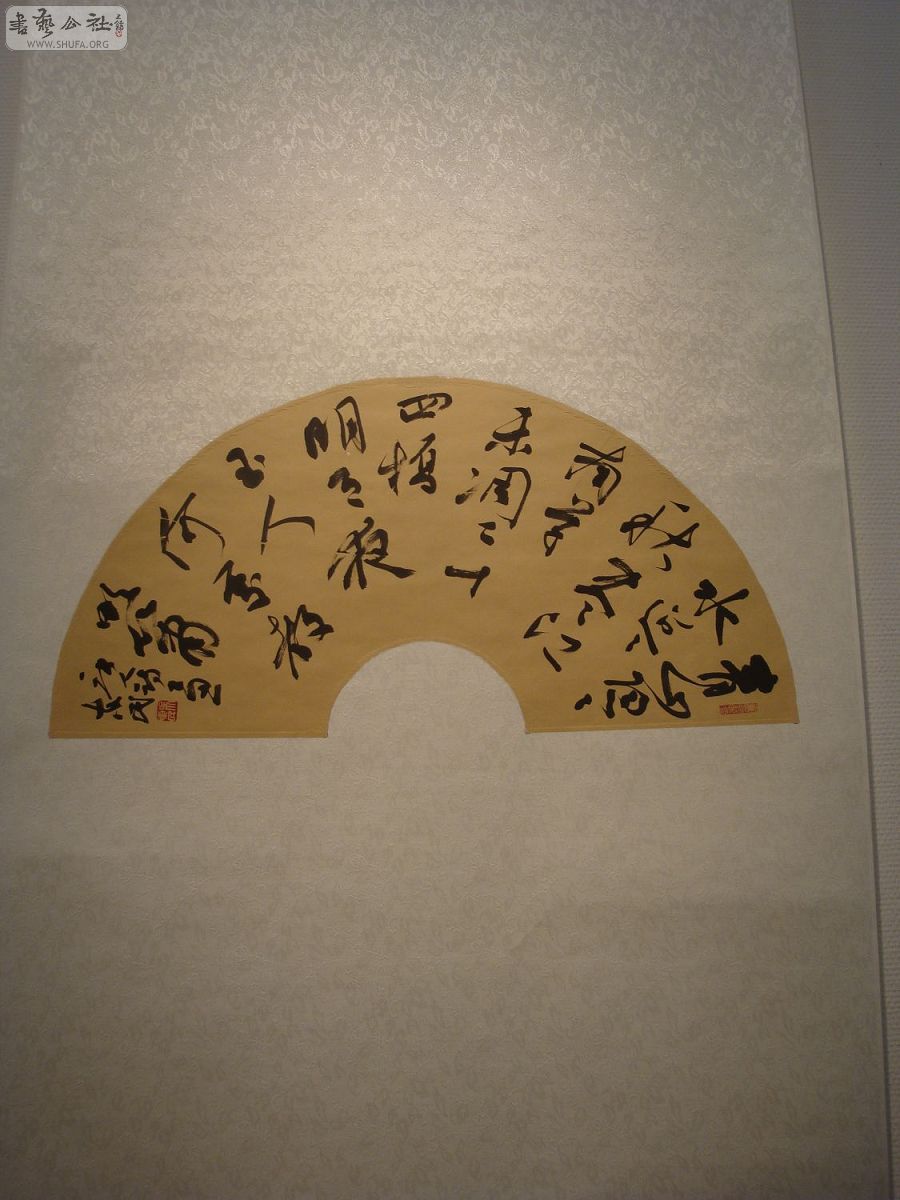 書藝公社
WWW.SHUFA.ORG
青山隱〻
水迢〻
秋盡江
南草
未凋二十
四橋
明月夜
玉人
何處教
吹簫